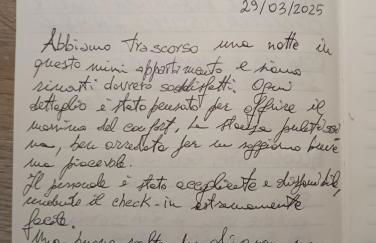 29/03/2025
Abbiamo trascorso una notte in
questo mini appartamento e siamo
rimasti davvero soddisfatti. Ogni
dettaglio è stato pensato per offrire il
massimo del confort, la stanza pulitissi
ma, ben arredata per un soggiorno breve
ma piacevole.
Il personale è stato accogliente e disponibile,
rendendo il check-in estremamente
facile.
Una buona